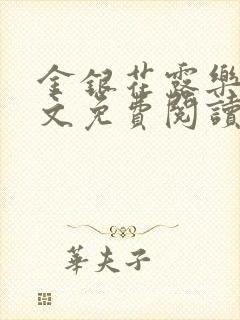 金銀花露樂
文免費閱讀
華夫子